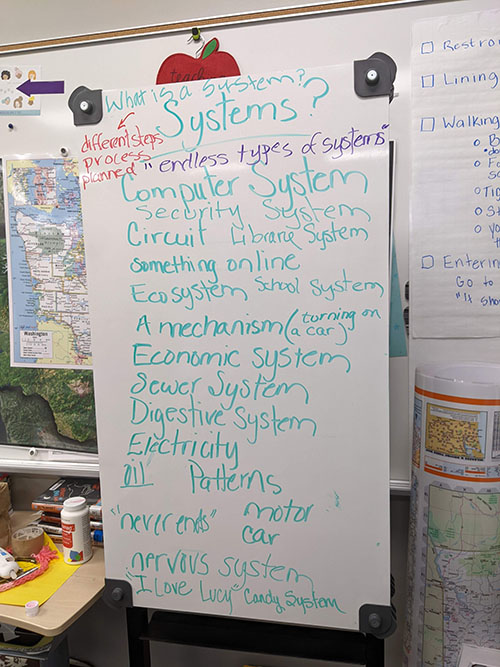 teach
What is a system?
Systems?
different steps
process
planned
"endless types of systems"
Computer System
Security System
Circuit Library System
something online
Ecosystem School System
A mechanism (turning on a car)
Economic System
Sewer System
Digestive System
Electricity
oil Patterns
"never ends" motor
car
nervous system
"I Love Lucy" Candy System
Washington
Restro
Lining
Walking
Enterin
Go to